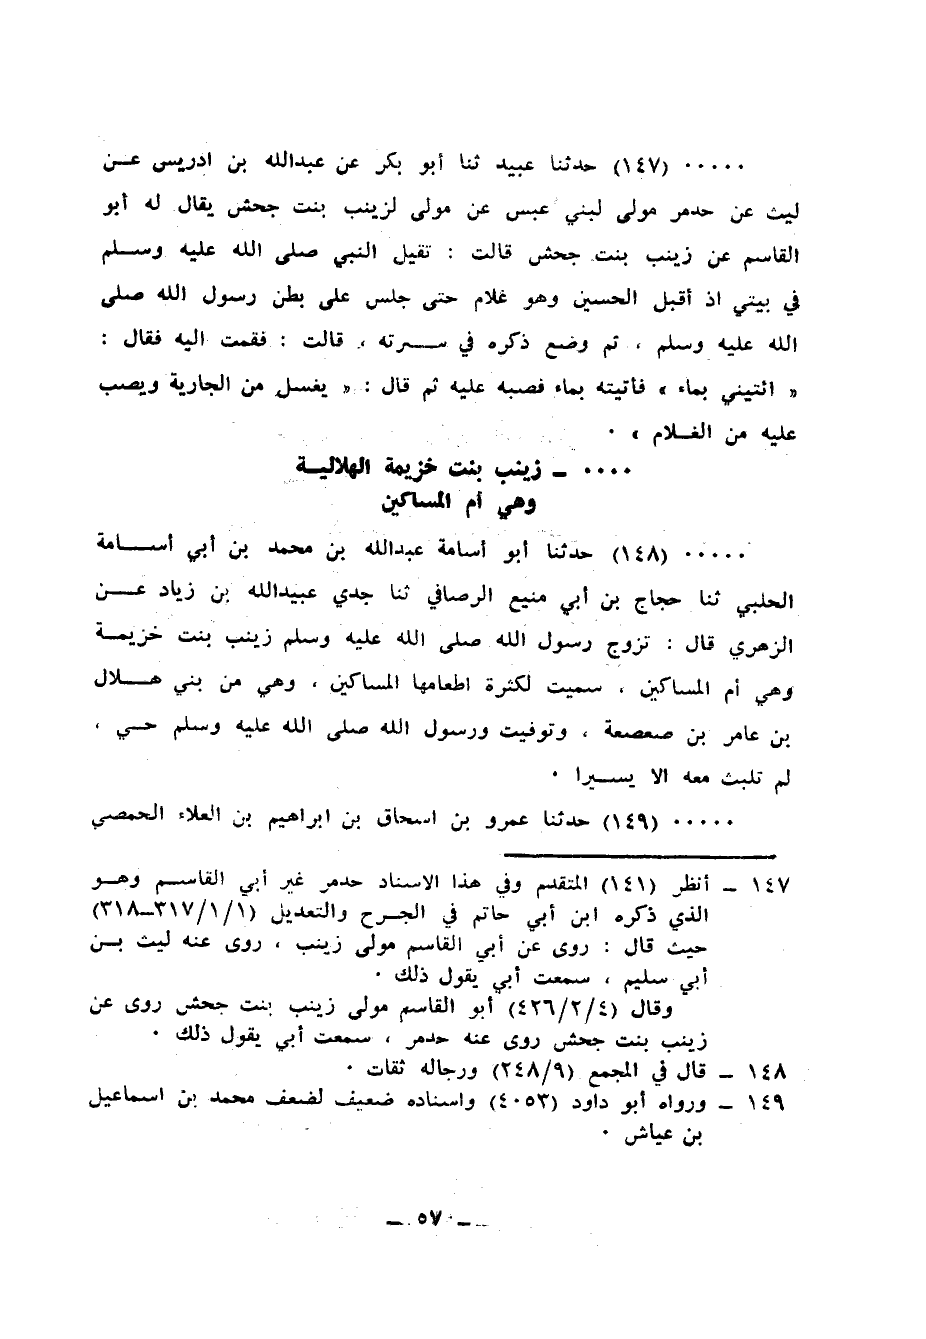 ..... (١٤٧) حدثنا عبيد ثنا أبو بكر عن عبدالله بن ادريس عن
ليث عن حدمر مولى لبني عبس عن مولى لزينب بنت جحش يقال له أبو
القاسم عن زينب بنت جحش قالت : تقيل النبي صلى الله عليه وسلم
في بيتي اذ أقبل الحسين وهو غلام حتى جلس على بطن رسول الله صلى
الله عليه وسلم ، ثم وضع ذكره في سرته ، قالت : فقمت اليه فقال :
« ائتيني بماء » فأتيته بماء فصبه عليه ثم قال : « يغسل من الجارية ويصب
عليه من الغلام » .
.... ــ زينب بنت خزيمة الهلالية
وهي أم المساكين
..... (١٤٨) حدثنا أبو أسامة عبدالله بن محمد بن أبي أسامة
الحلبي ثنا حجاج بن أبي منيع الرصافي ثنا جدي عبيدالله بن زياد عن
الزهري قال : تزوج رسول الله صلى الله عليه وسلم زينب بنت خزيمة
وهي أم المساكين ، سميت لكثرة اطعامها المساكين ، وهي من بني هلال
بن عامر بن صعصعة ، وتوفيت ورسول الله صلى الله عليه وسلم حي ،
لم تلبث معه الا يسيرا .
..... (١٤٩) حدثنا عمرو بن اسحاق بن ابراهيم بن العلاء الحمصي
١٤٧ ــ أنظر (١٤١) المتقدم وفي هذا الاسناد حدمر غير أبي القاسم وهو
الذي ذكره ابن أبي حاتم في الجرح والتعديل (٣١٧/١/١ــ٣١٨)
حيث قال : روى عن أبي القاسم مولى زينب ، روى عنه ليث بن
أبي سليم ، سمعت أبي يقول ذلك .
وقال (٤٢٦/٢/٤) أبو القاسم مولى زينب بنت جحش روى عن
زينب بنت جحش روى عنه حدمر ، سمعت أبي يقول ذلك .
١٤٨ ــ قال في المجمع (٢٤٨/٩) ورجاله ثقات .
١٤٩ ــ ورواه أبو داود (٤٠٥٣) واسناده ضعيف لضعف محمد بن اسماعيل
بن عياش .
ــ ٥٧ ــ